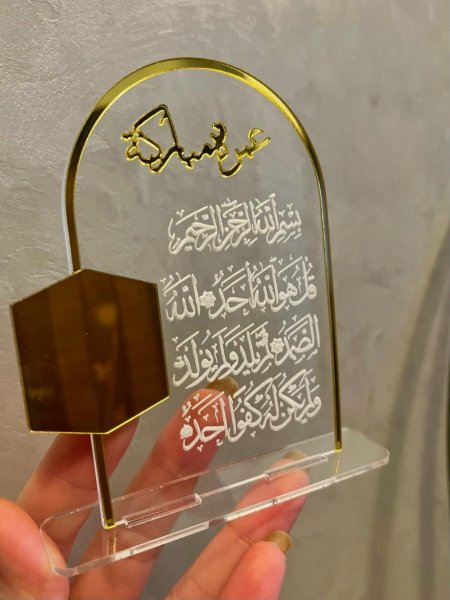 عمرة مباركة
بِسْمِ اللَّهِ الرَّحْمَٰنِ الرَّحِيمِ
قُلْ هُوَ اللَّهُ أَحَدٌ ۝ اللَّهُ
الصَّمَدُ ۝ لَمْ يَلِدْ وَلَمْ يُولَدْ
وَلَمْ يَكُن لَّهُ كُفُوًا أَحَدٌ ۝